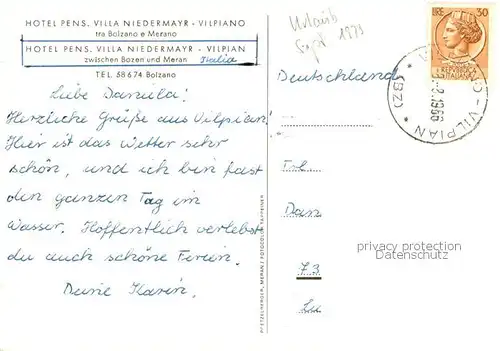 HOTEL PENS. VILLA NIEDERMAYR - VILPIANO
tra Bolzano e Merano
HOTEL PENS. VILLA NIEDERMAYR - VILPIAN
zwischen Bozen und Meran Italia
TEL. 58674 Bolzano
Liebe Daniela!
Herzliche Grüße aus Vilpian!
Hier ist das Wetter sehr
schön, und ich bin fast
den ganzen Tag im
Wasser. Hoffentlich verlebst
du auch schöne Ferien.
Deine Karin.
PRETZELBERGER, MERAN / FOTOCOLOR TAPPEINER
Urlaub
Sept 1973
Deutschland
LIRE 30
REPUBBLICA
ITALIANA
VILPIAN
* (BZ) *
1966
Frl.
Dan
73
privacy protection
Datenschutz